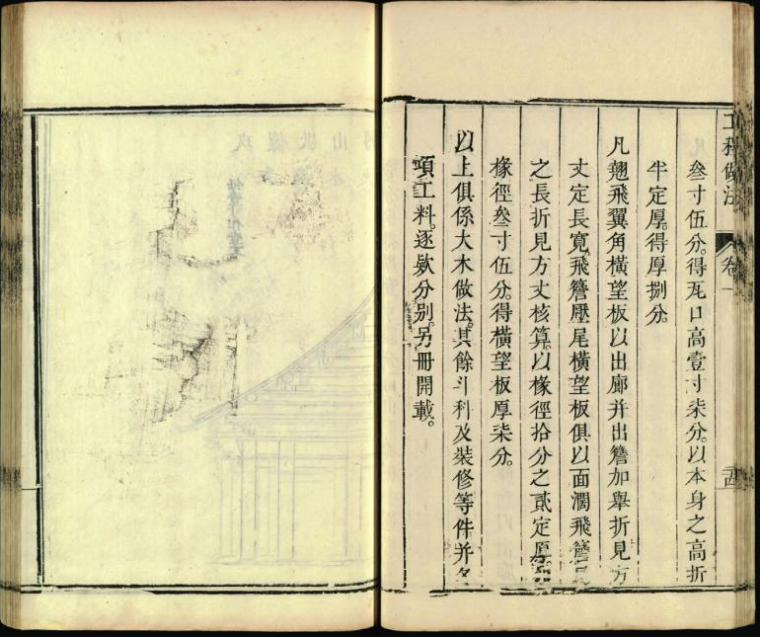 工程做法 卷一
叁寸伍分。得瓦口高壹寸柒分。以本身之高折
半定厚。得厚捌分。
凡翹飛翼角橫望板以出廊并出簷加舉折見方
丈定長寬。飛簷壓尾橫望板俱以面濶飛簷
之長折見方丈核算。以椽徑拾分之貳定厚
椽徑叁寸伍分。得橫望板厚柒分。
以上俱係大木做法。其餘斗科及裝修等件并
項工料。逐欵分別。另冊開載。